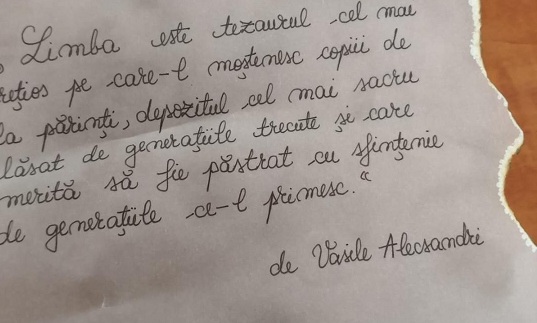 „Limba este tezaurul cel mai
prețios pe care-l moștenesc copiii de
la părinți, depozitul cel mai sacru
lăsat de generațiile trecute și care
merită să fie păstrat cu sfințenie
de generațiile ce-l primesc.“
de Vasile Alecsandri